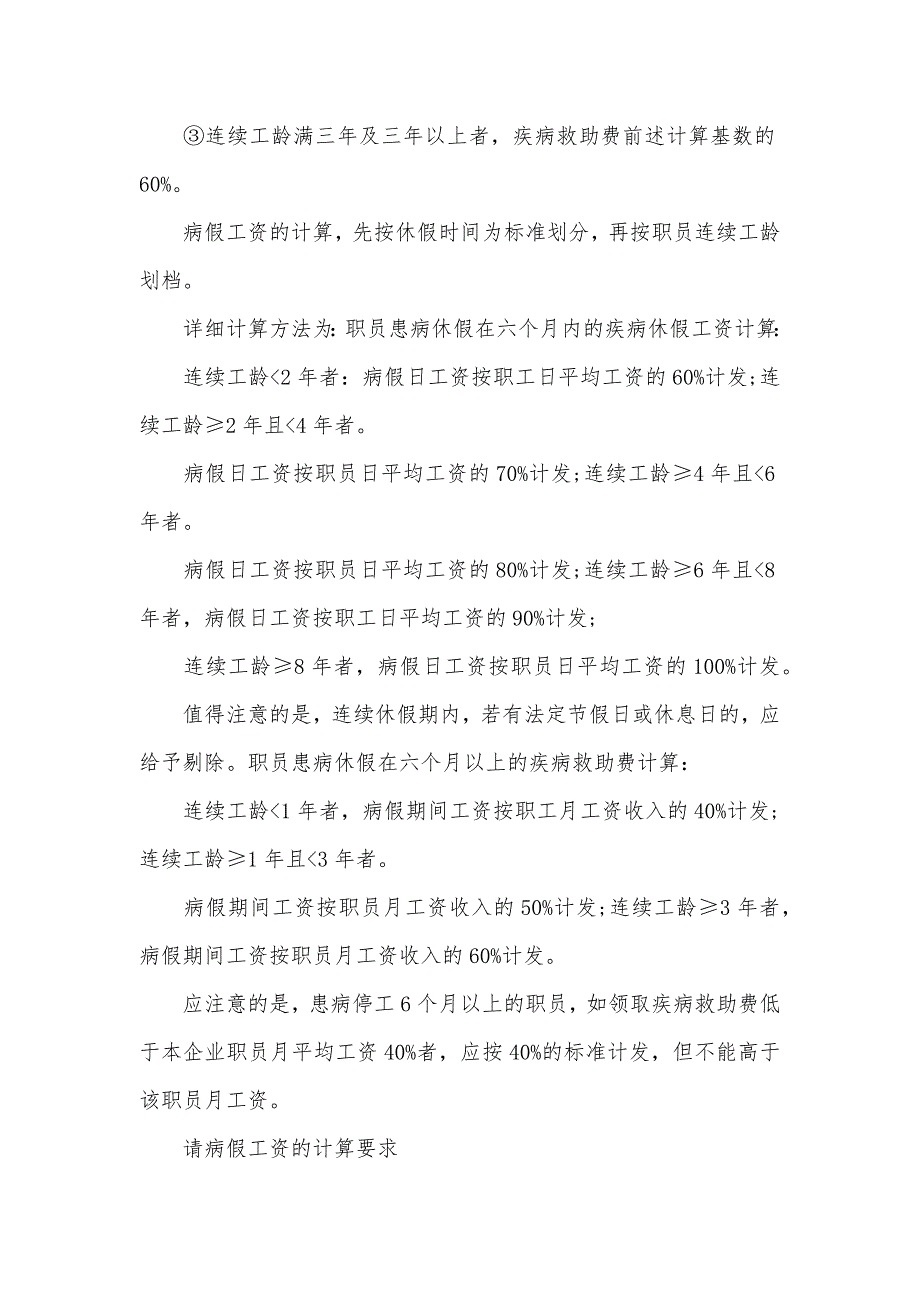 ③连续工龄满三年及三年以上者，疾病救助费前述计算基数的
60%。
病假工资的计算，先按休假时间为标准划分，再按职员连续工龄
划档。
详细计算方法为：职员患病休假在六个月内的疾病休假工资计算：
连续工龄<2 年者：病假日工资按职工日平均工资的 60%计发;连
续工龄≥2 年且<4 年者。
病假日工资按职员日平均工资的 70%计发;连续工龄≥4 年且<6
年者。
病假日工资按职员日平均工资的 80%计发;连续工龄≥6 年且<8
年者，病假日工资按职工日平均工资的 90%计发;
连续工龄≥8 年者，病假日工资按职员日平均工资的 100%计发。
值得注意的是，连续休假期内，若有法定节假日或休息日的，应
给予剔除。职员患病休假在六个月以上的疾病救助费计算：
连续工龄<1 年者，病假期间工资按职工月工资收入的 40%计发;
连续工龄≥1 年且<3 年者。
病假期间工资按职员月工资收入的 50%计发;连续工龄≥3 年者，
病假期间工资按职员月工资收入的 60%计发。
应注意的是，患病停工 6 个月以上的职员，如领取疾病救助费低
于本企业职员月平均工资 40%者，应按 40%的标准计发，但不能高于
该职员月工资。
请病假工资的计算要求